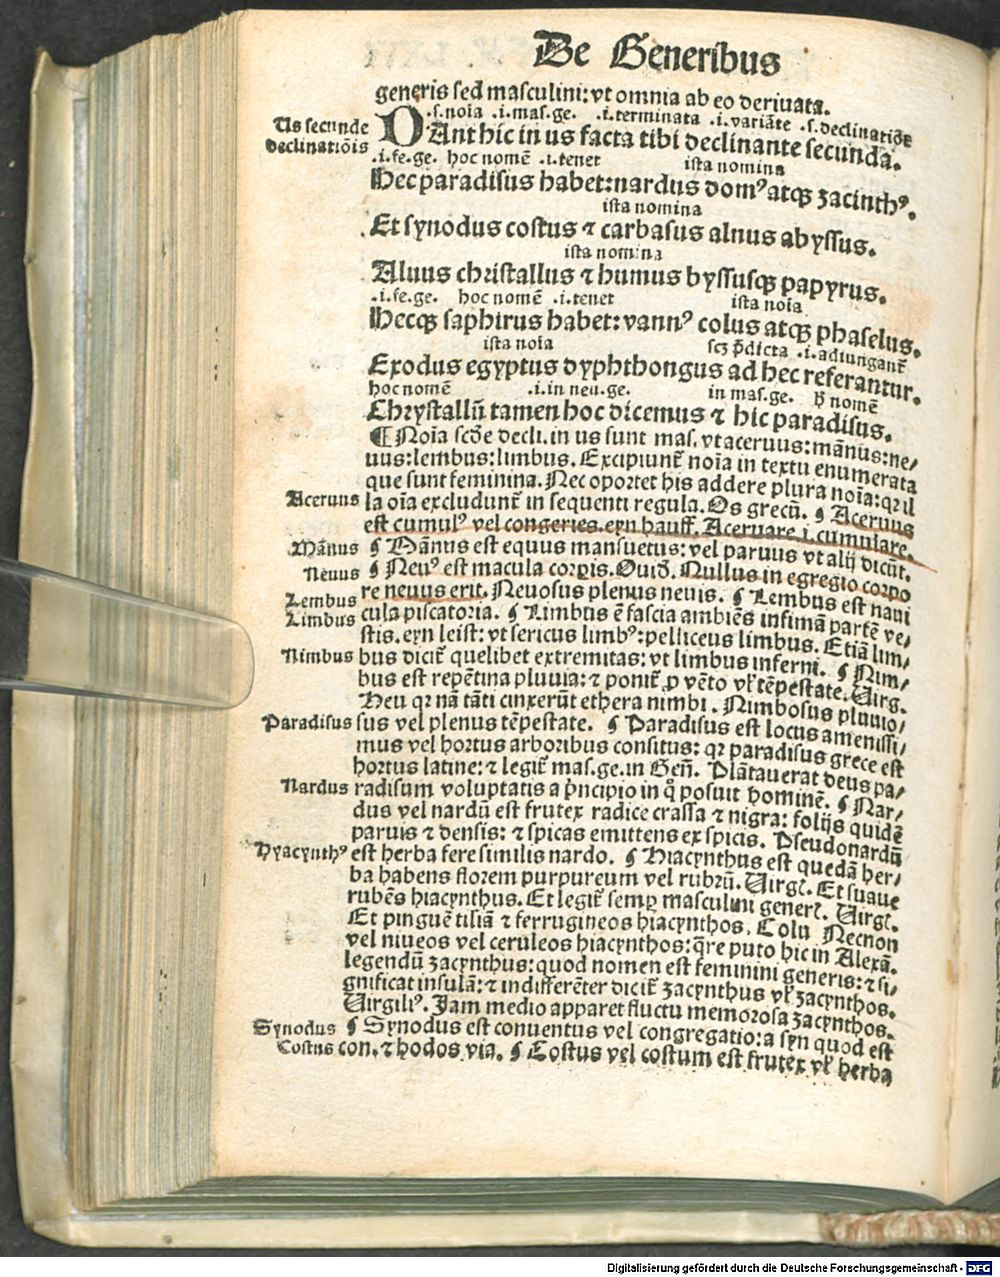 De Generibus
generis sed masculini: vt omnia ab eo deriuata.
.s.noīa .i.mas.ge. .i.terminata .i.variāte .s.declinatiōe
Us secunde
declinatiōis
DAnt hic in us facta tibi declinante secunda.
.i.fe.ge. hoc nomē .i.tenet ista nomina
Hec paradisus habet: nardus domꝰ atqꝫ zacinthꝰ.
ista nomina
Et synodus costus ⁊ carbasus alnus abyssus.
ista nomina
Aluus christallus ⁊ humus byssusqꝫ papyrus.
.i.fe.ge. hoc nomē .i.tenet ista noīa
Hecqꝫ saphirus habet: vannꝰ colus atqꝫ phaselus.
ista noīa scꝫ p̄dicta .i.adiungant᷑
Exodus egyptus dyphthongus ad hec referantur.
hoc nomē .i.in neu.ge. in mas.ge. nomē
Chrystallū tamen hoc dicemus ⁊ hic paradisus.
¶ Noīa scd̄e decli. in us sunt mas. vt aceruus: mānus: ne/
uus: lembus: limbus. Excipiunt᷑ noīa in textu enumerata
que sunt feminina. Nec oportet his addere plura noīa: qꝛ il
Aceruus la oīa excludunt᷑ in sequenti regula. Os grecū. ¶ Aceruus
est cumulꝰ vel congeries. eyn hauff. Aceruare .i. cumulare.
Mānus ¶ Mānus est equus mansuetus: vel paruus vt alij dicūt.
Neuus ¶ Neuꝰ est macula corpis. Ouid̄. Nullus in egregio corpo
Lembus re neuus erit. Neuosus plenus neuis. ¶ Lembus est naui
Limbus cula piscatoria. ¶ Limbus ē fascia ambiēs infimā partē ve/
stis. eyn leist: vt sericus limbꝰ: pelliceus limbus. Etiā lim/
Nimbus bus dicit᷑ quelibet extremitas: vt limbus inferni. ¶ Nim/
bus est repētina pluuia: ⁊ ponit᷑ ꝓ vēto vl̓ tēpestate. Uirg.
Heu qꝛ nā tāti cinxerūt ethera nimbi. Nimbosus pluuio/
Paradisus sus vel plenus tēpestate. ¶ Paradisus est locus amenissi/
mus vel hortus arboribus consitus: qꝛ paradisus grece est
hortus latine: ⁊ legit᷑ mas.ge. in Gen̄. Plātauerat deus pa/
Nardus radisum voluptatis a p̄ncipio in q̊ posuit hominē. ¶ Nar/
dus vel nardū est frutex radice crassa ⁊ nigra: folijs quidē
paruis ⁊ densis: ⁊ spicas emittens ex spicis. Pseudonardū
Hyacynthꝰ est herba fere similis nardo. ¶ Hiacynthus est quedā her/
ba habens florem purpureum vel rubrū. Uirgl̓. Et suaue
rubēs hiacynthus. Et legit᷑ semꝑ masculini generl̓. Uirgl̓.
Et pinguē tiliā ⁊ ferrugineos hiacynthos. Colu Necnon
vel niueos vel ceruleos hiacynthos: q̄re puto hic in Alexā.
legendū zacynthus: quod nomen est feminini generis: ⁊ si-
gnificat insulā: ⁊ indifferēter dicit᷑ zacynthus vl̓ zacynthos.
Uirgiliꝰ. Jam medio apparet fluctu memorosa zacynthos.
Synodus ¶ Synodus est conuentus vel congregatio: a syn quod est
Costus con. ⁊ hodos via. ¶ Costus vel costum est frutex vl̓ herba
Digitalisierung gefördert durch die Deutsche Forschungsgemeinschaft - DFG